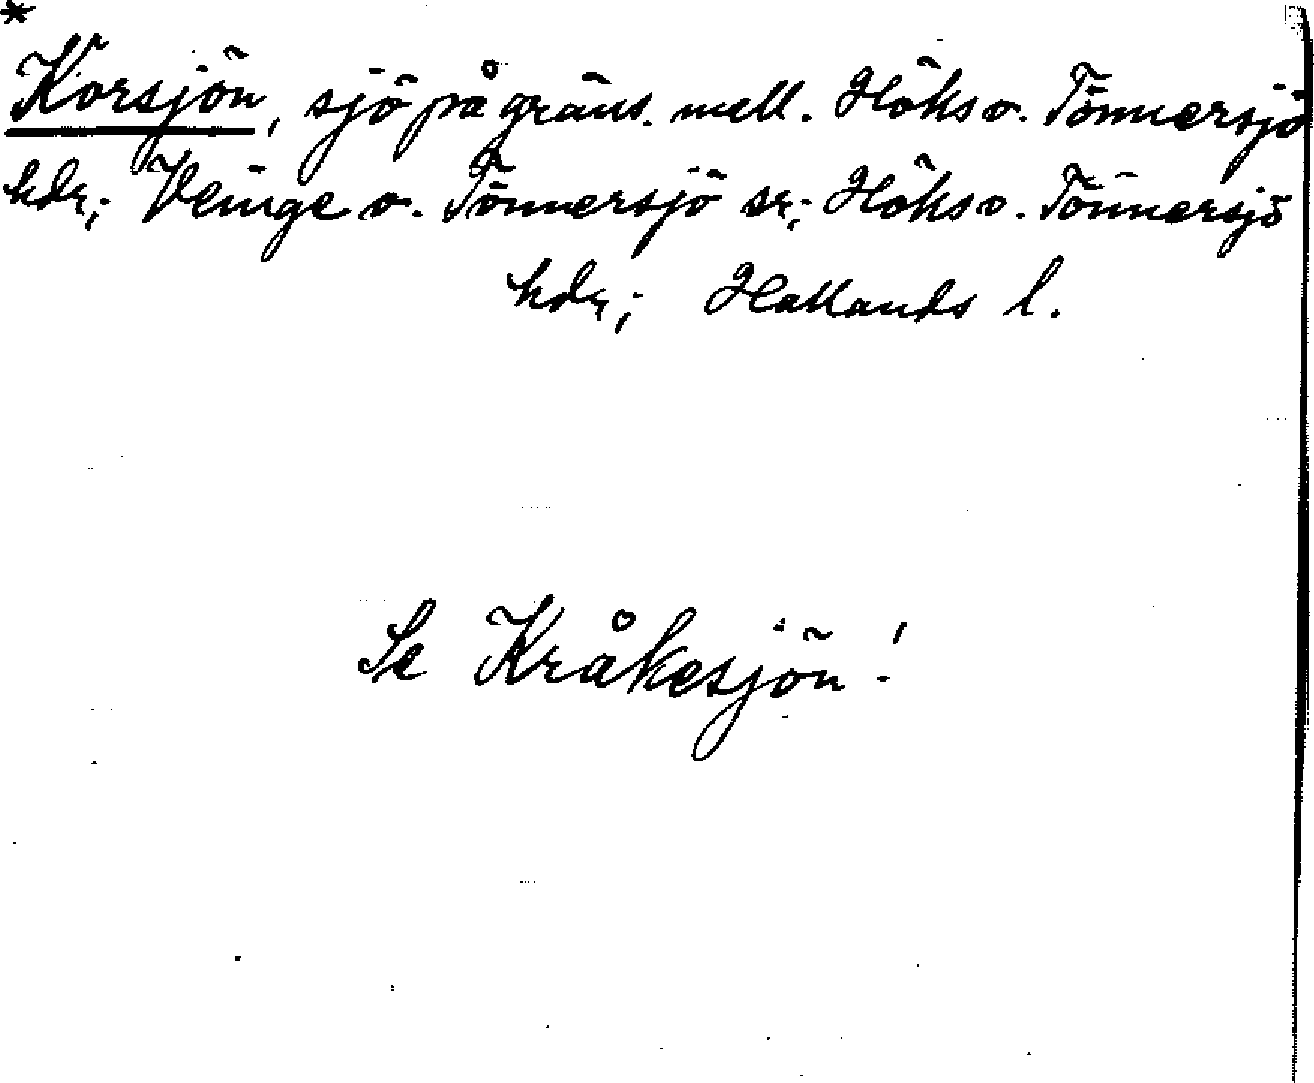 *
Korsjön, sjö på gräns. mell. Höks o. Tönnersjö
hdr; Veinge o. Tönnersjö sr; Höks o. Tönnersjö
hdr; Hallands l.
Se Kråkesjön!